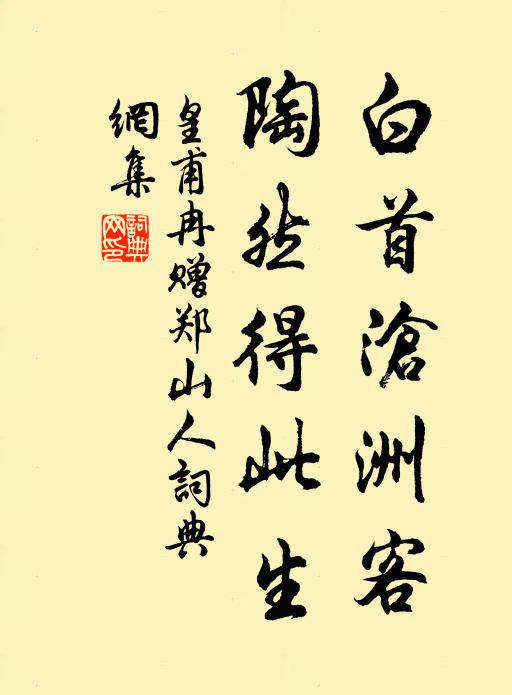 白首滄洲客
陶然得此生
皇甫冉赠郑山人詞典
網集
詞典
网印